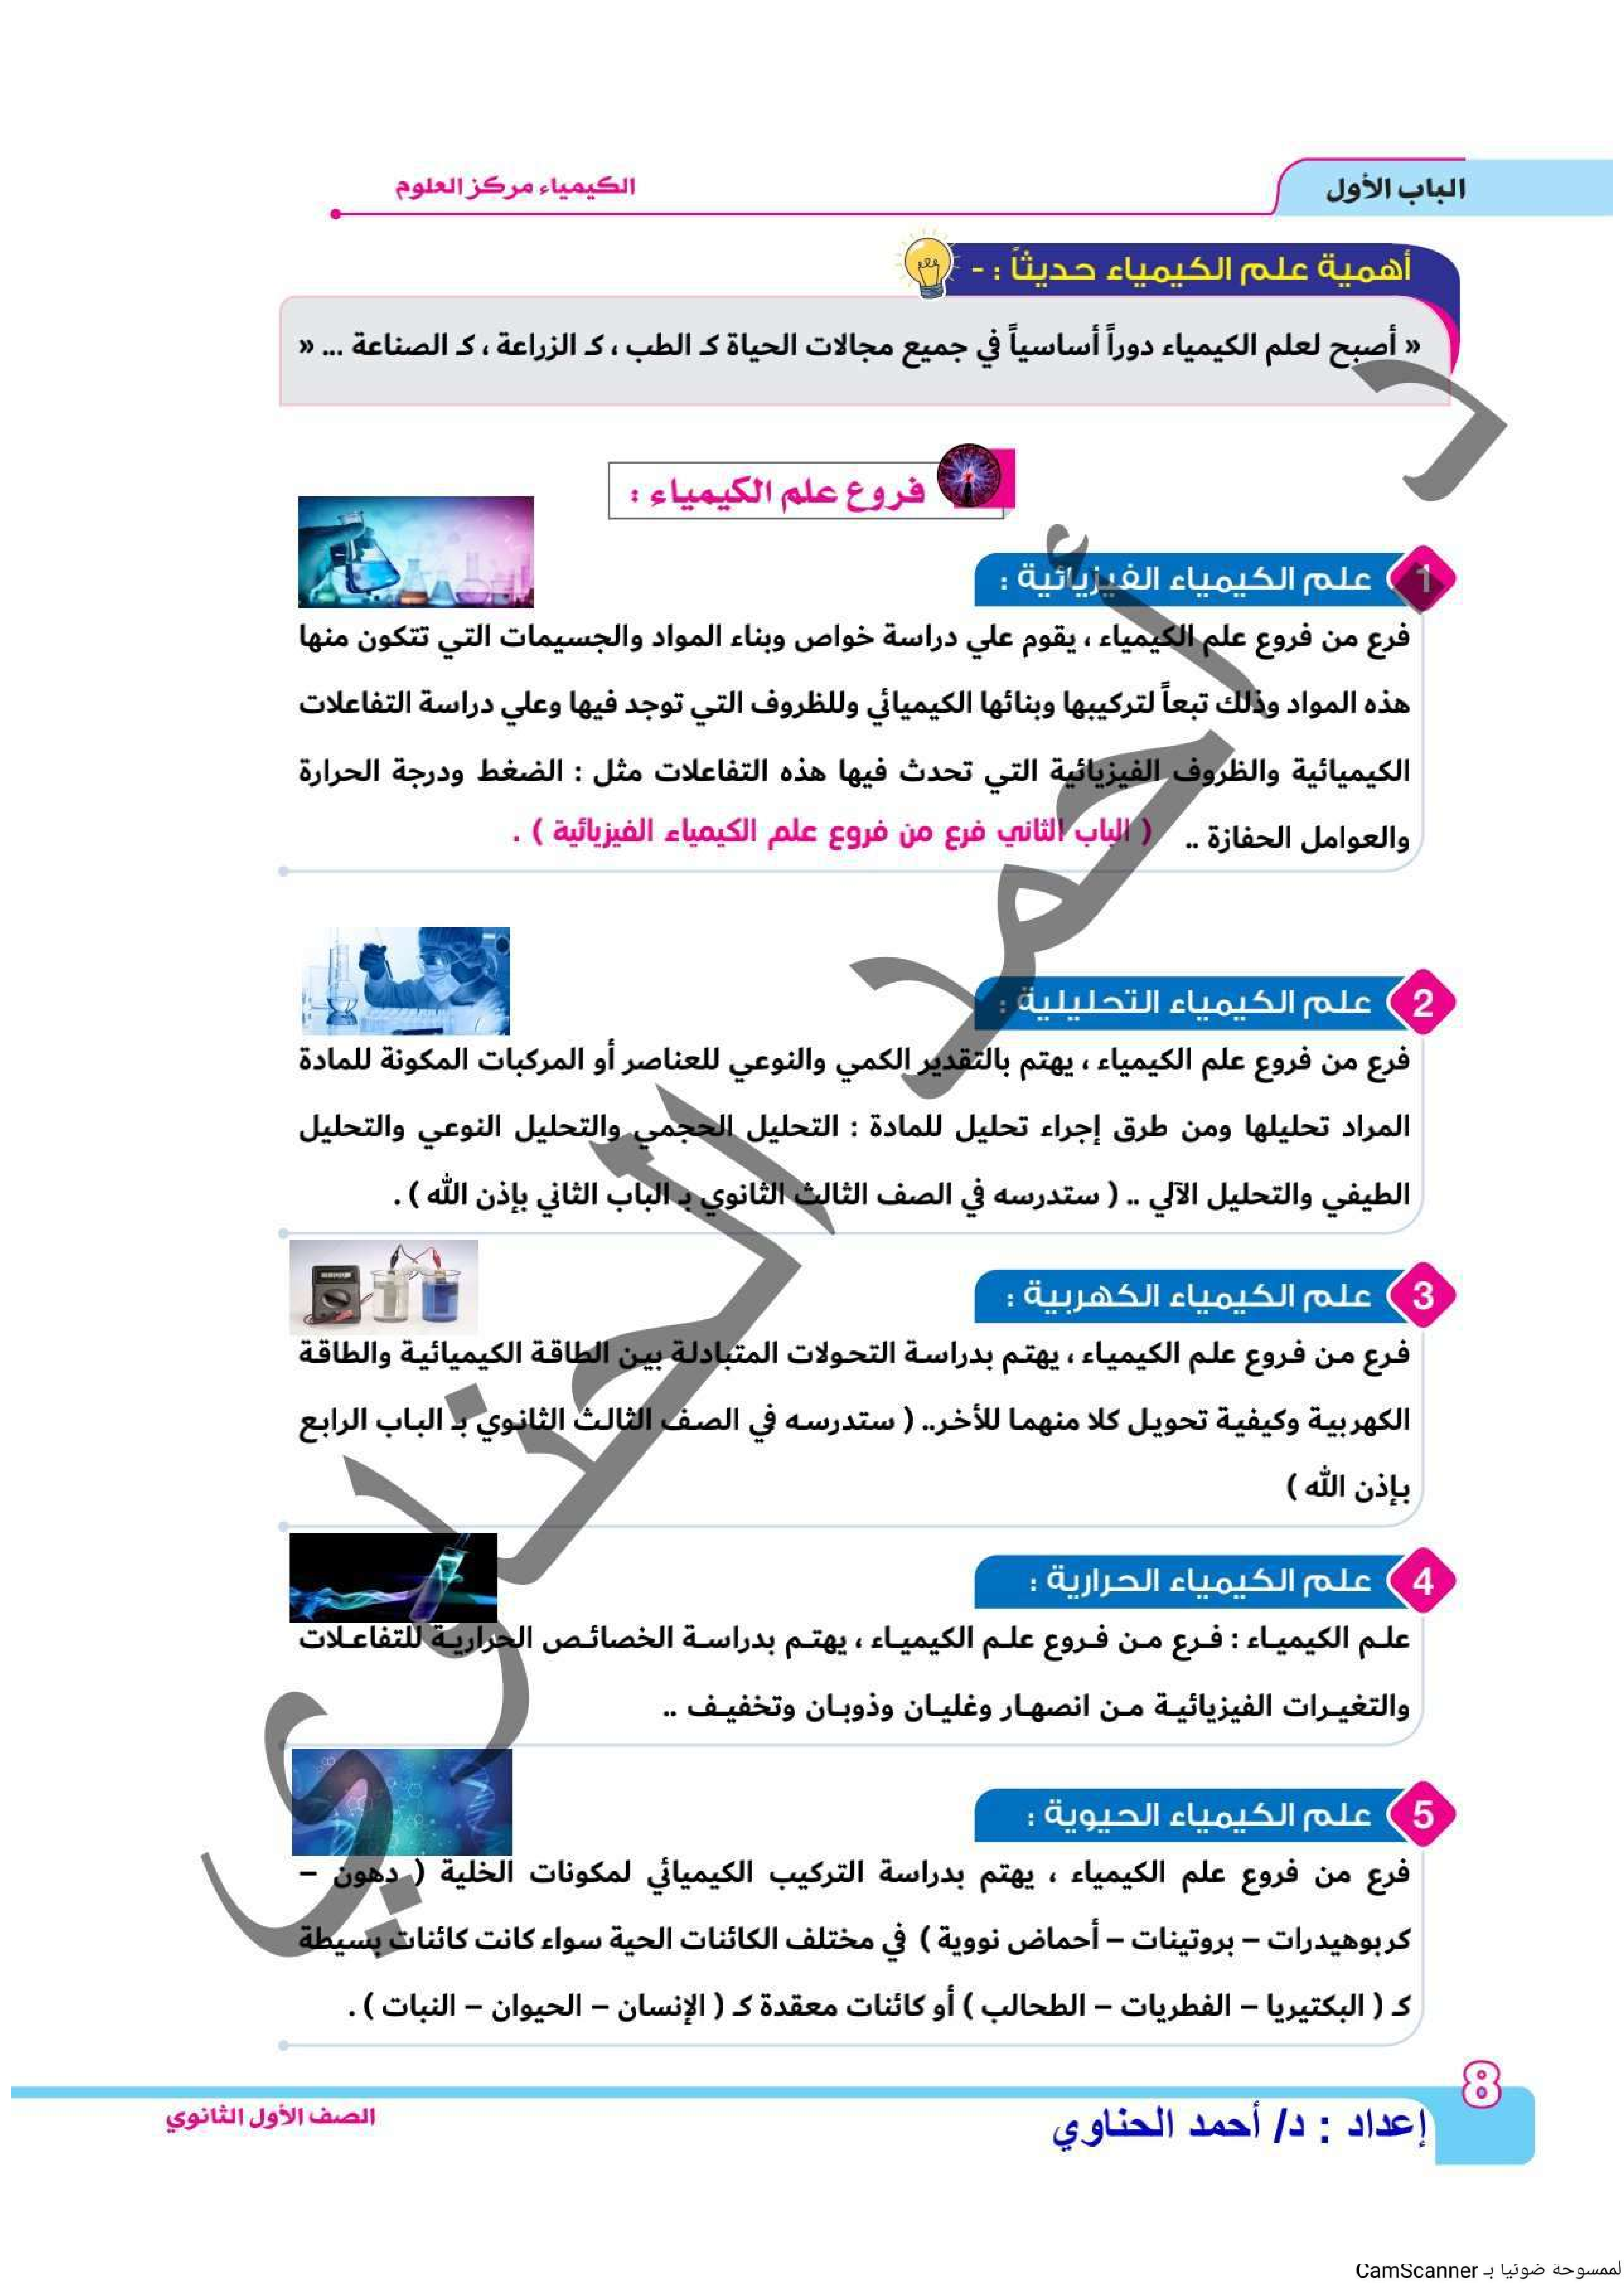 الباب الأول
الكيمياء مركز العلوم
أهمية علم الكيمياء حديثاً : -
« أصبح لعلم الكيمياء دوراً أساسياً في جميع مجالات الحياة كـ الطب ، كـ الزراعة ، كـ الصناعة ... »
فروع علم الكيمياء :
1 علم الكيمياء الفيزيائية :
فرع من فروع علم الكيمياء ، يقوم علي دراسة خواص وبناء المواد والجسيمات التي تتكون منها
هذه المواد وذلك تبعاً لتركيبها وبنائها الكيميائي وللظروف التي توجد فيها وعلي دراسة التفاعلات
الكيميائية والظروف الفيزيائية التي تحدث فيها هذه التفاعلات مثل : الضغط ودرجة الحرارة
والعوامل الحفازة .. ( الباب الثاني فرع من فروع علم الكيمياء الفيزيائية ) .
2 علم الكيمياء التحليلية :
فرع من فروع علم الكيمياء ، يهتم بالتقدير الكمي والنوعي للعناصر أو المركبات المكونة للمادة
المراد تحليلها ومن طرق إجراء تحليل للمادة : التحليل الحجمي والتحليل النوعي والتحليل
الطيفي والتحليل الآلي .. ( ستدرسه في الصف الثالث الثانوي بـ الباب الثاني بإذن الله ) .
3 علم الكيمياء الكهربية :
فرع من فروع علم الكيمياء ، يهتم بدراسة التحولات المتبادلة بين الطاقة الكيميائية والطاقة
الكهربية وكيفية تحويل كلا منهما للأخر.. ( ستدرسه في الصف الثالث الثانوي بـ الباب الرابع
بإذن الله )
4 علم الكيمياء الحرارية :
علم الكيمياء : فرع من فروع علم الكيمياء ، يهتم بدراسة الخصائص الحرارية للتفاعلات
والتغيرات الفيزيائية من انصهار وغليان وذوبان وتخفيف ..
5 علم الكيمياء الحيوية :
فرع من فروع علم الكيمياء ، يهتم بدراسة التركيب الكيميائي لمكونات الخلية ( دهون –
كربوهيدرات – بروتينات – أحماض نووية ) في مختلف الكائنات الحية سواء كانت كائنات بسيطة
كـ ( البكتيريا – الفطريات – الطحالب ) أو كائنات معقدة كـ ( الإنسان – الحيوان – النبات ) .
د أحمد الحناوي
8
إعداد : د/ أحمد الحناوي
الصف الأول الثانوي
لممسوحة ضوئيا بـ CamScanner